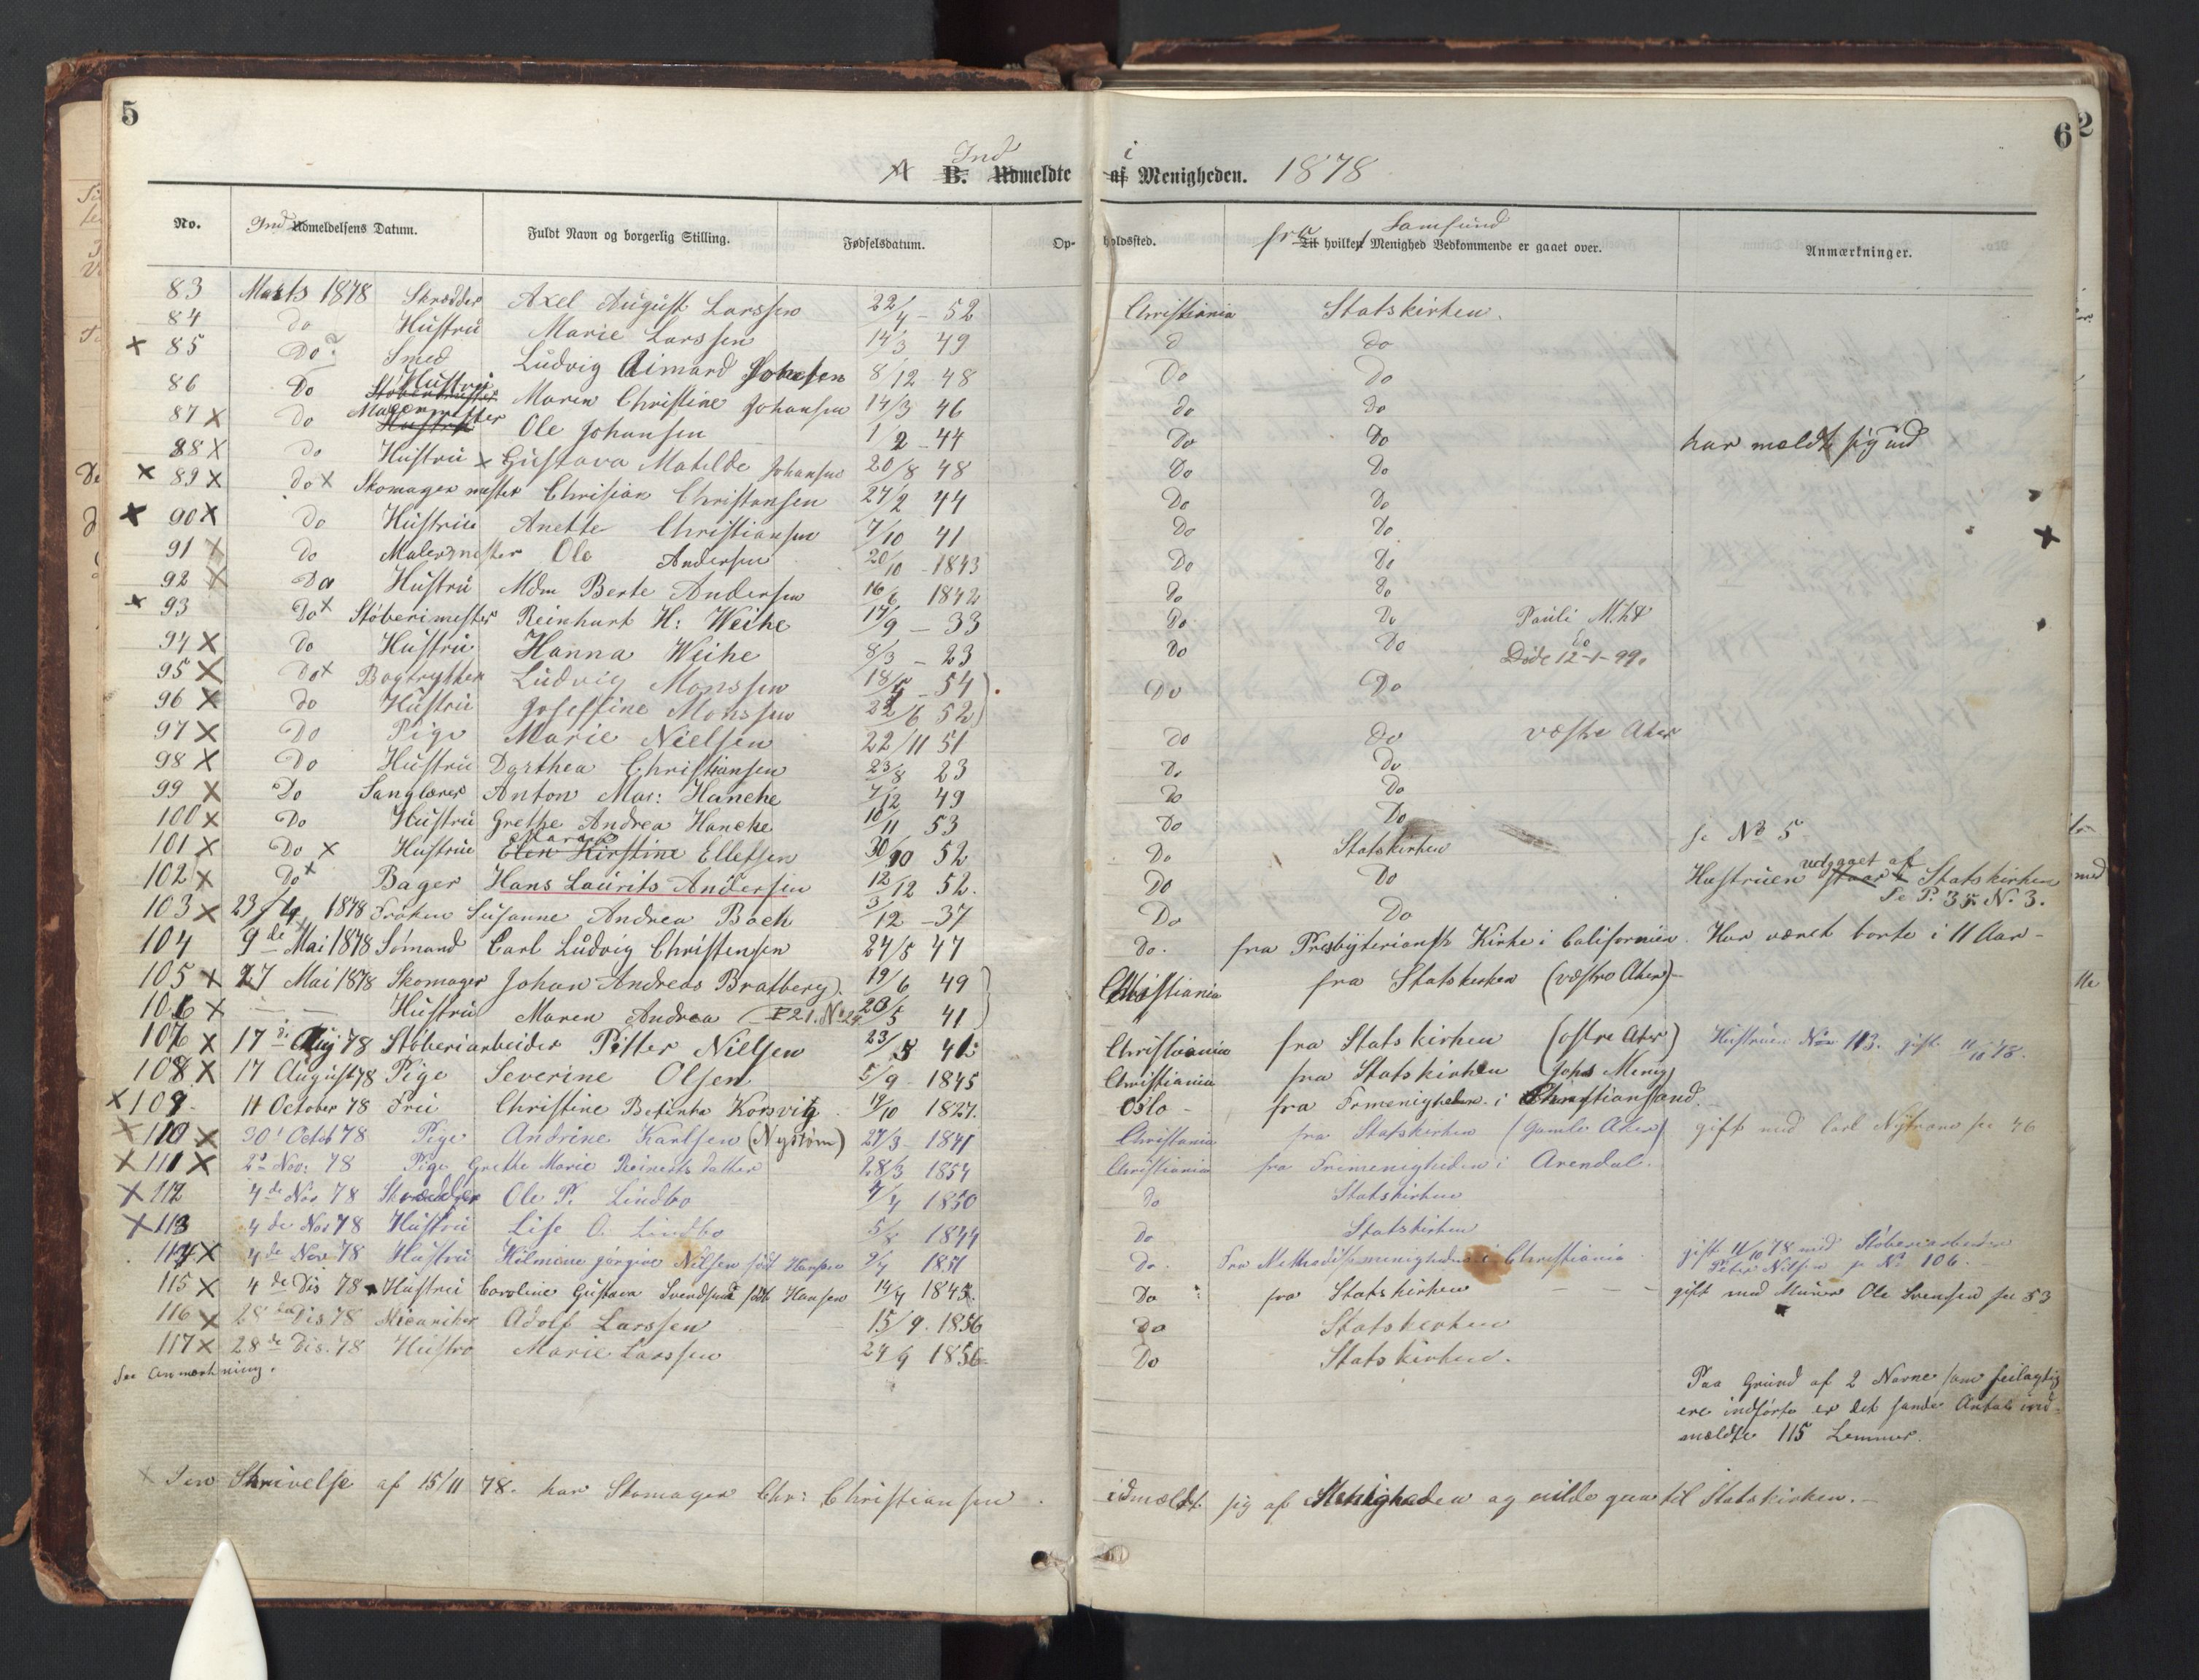 5
6
Ind i
A B. Udmeldte af Menigheden. 1878
No. Ind Udmeldelsens Datum. Fuldt Navn og borgerlig Stilling. Fødselsdatum. Opholdssted. fra Til hvilken Menighed Samfund Vedkommende er gaaet over. Anmærkninger.
83 Marts 1878 Skrædder Axel August Larssen 22/4 - 52 Christiania Statskirken.
84 do Hustru Marie Larssen 14/3 49 d do
x 85 Do Smed Ludvig Eimard Johnsen 8/12 48 Do Do
86 Do Støberimester Hustru Maren Christine Johansen 14/3 46 do do
87 x do Hustru Ole Johansen 1/2 - 44 Do Do har meldt sig ud
88 x do Hustru x Gustava Matilde Johansen 20/8 48 Do Do
x 89 x do x Skomagermester Chrisian Christansen 27/2 44 Do Do
x 90 x do Hustru Anette Christiansen 7/10 41 Do Do x
91 x do Malermester Ole Andersen 20/10 - 1843 Do Do
92 x Do Hustru Mdm Berte Andersen 16/6 1842 Do Do
x 93 Do x Støberimester Reinhart H: Weihe 17/9 - 33 Do Do Pauli M.ht
94 x do Hustru Hanna Weihe 8/3 - 23 Do Do do Døde 12-1-99.
95 x Do x Bogtrykker Ludvig Monssen 18/5 - 54 Do Do
96 x do Hustru Josefine Monssen 22/6 52
97 x Do Pige Marie Nielsen 22/11 51 do do vestre Aker
98 x Do Hustru Dorthea Christiansen 23/8 23 Do Do
99 x Do Sanglærer Anton Mar: Hanche 7/12 49 Do Do
100 x Do Hustru Grethe Andrea Hanche 10/11 53 Do Do
101 x Do x Hustru Elen Kirstine Maran Ellefsen 30/10 52 Do Statskirken se No 5
102 x Do x Bager Hans Laurits Andersen 12/12 52. Do Do Hustruen staar i udgaaet af Statskirken
Se P. 35 N. 3.
103 x 23/4 1878 Frøken Susanne Andrea Bach 3/12 - 37 Do Do
104 9de Mai 1878 Sømand Carl Ludvig Christensen 24/5 47 do. fra Presbyterianske Kirke i Californien. Har været borte i 11 Aar -
105 x 27 Mai 1878 Skomager Johan Andreas Bratberg 19/6 49 Christiania fra Statskirken (vestre Aker) -
106 x — — Hustru Maren Andrea P 21. No 24 20/5 41
107 x 17de Aug 78 Støberiarbeider Pitter Nielsen 23/3 42 Christiania fra Statskirken (østre Aker) Hustruen No 113. gift 11/10 78.
108 x 17 August 78 Pige Severine Olsen 5/9 1845 Christiania fra Statskirken (Johs Menig)
x 109. 11 October 78 Fru Christine Bertinke Korsvig 19/10 1827. Oslo - fra Frmenigheden i Christiansand.
x 110 x 30' Octob 78 Pige Andrine Karlsen (Nystrøm) 27/3 1841 Christiania fra Statskirken (Gamle Aker) gift med Carl Nystrøm se 76
x 111 x 2d Nov: 78 Pige Grethe Marie Reinertsdatter 28/3 1854 Christiania fra Frimenigheden i Arendal.
x 112 4de Nov 78 Skrædder Ole P. Lindbo 4/4 1850 do Statskirken
x 113 4de Nov 78 Hustru Lise O. Lindbo 5/8 1844 do Statskirken
114 x 4de Nov 78 Hustru Hilmine Jørgine Nilsen født Hansen 9/4 1851 do. Fra Methodistmenigheden i Christiania gift 11/10 78 med Støberiarbeider
Peter Nilsen se No 106. -
115 x 4de Dis 78 Hustru Caroline Gustava Svendsen født Hansen 14/4 1845. Do fra Statskirken — — — gift med Murer Ole Svensen se 53
116 x 28de Dis 78 Mecaniker Adolf Larssen 15/9. 1856 Do Statskirken
117 x 28de Dis. 78 Hustro Marie Larssen 24/9 1856 Do Statskirken.
See Anmærkning.
Paa Grund af 2 Navne som feilagtig
ere indførte er det sande Antal ind-
meldte 115 Lemmer.
x I en Skrivelse af 15/11 78. har Skomager Chr: Christiansen udmeldt sig af Menigheden og vilde gaa til Statskirken. -